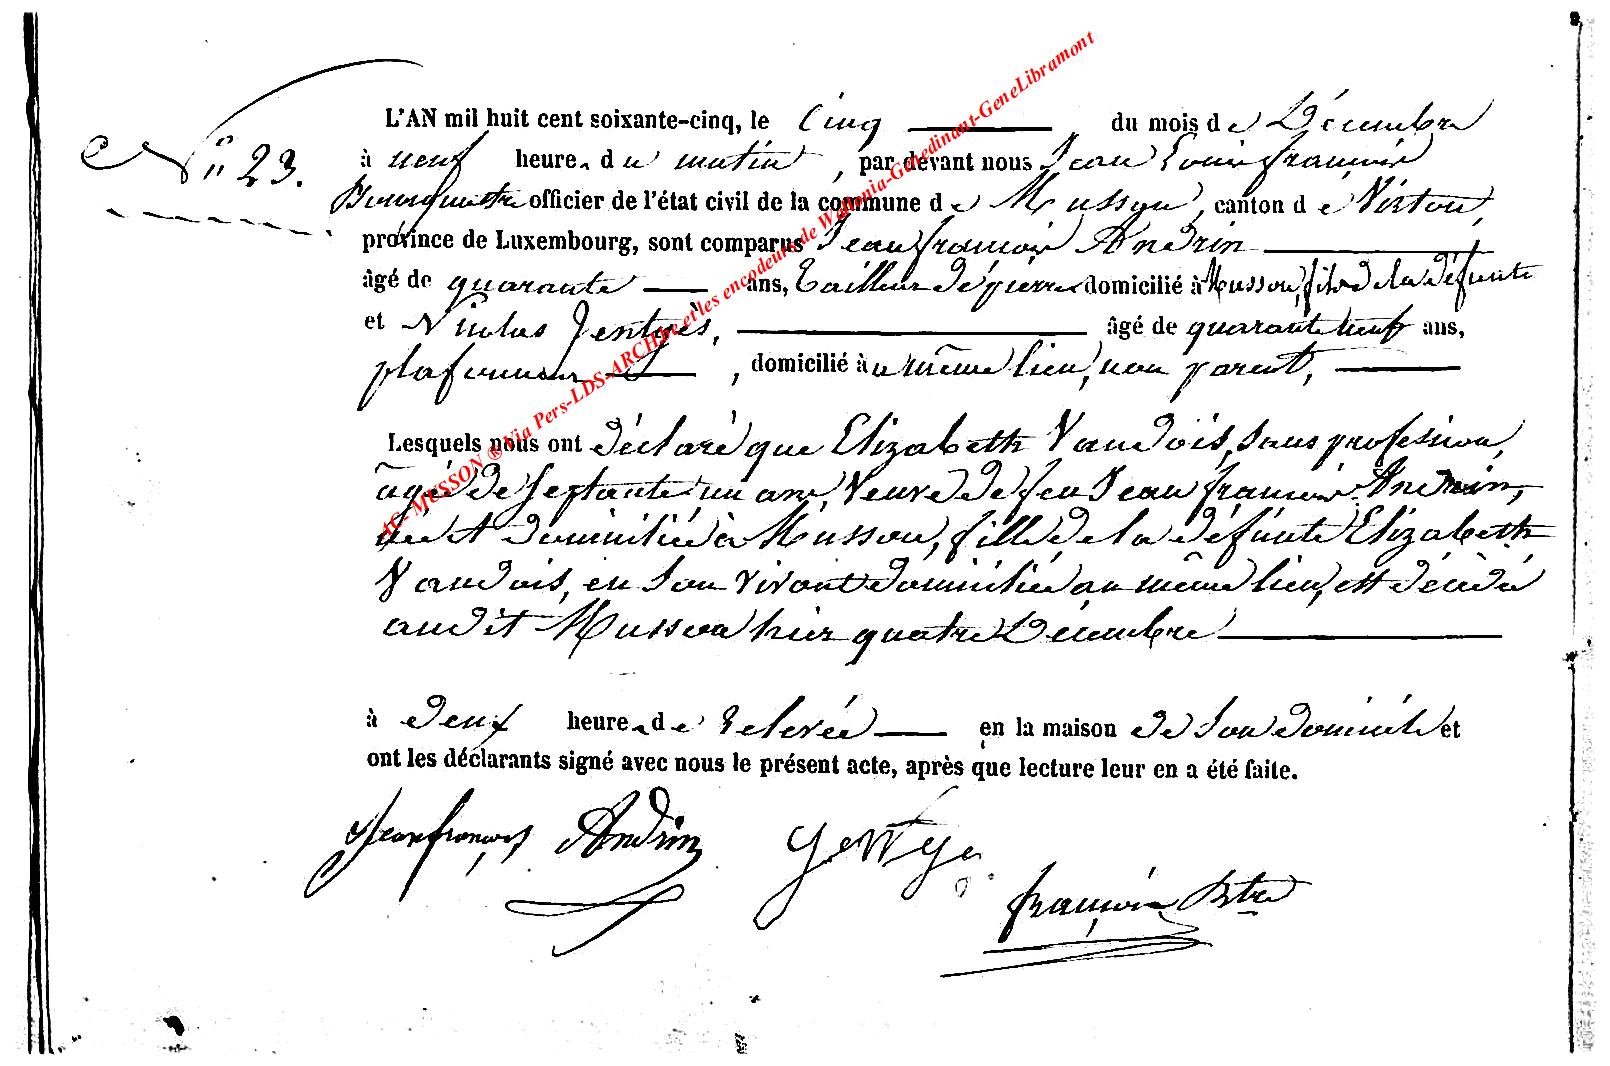 N° 23.
L'AN mil huit cent soixante-cinq, le cinq du mois de Décembre
à neuf heures du matin, par devant nous Jean Louis françois
officier de l'état civil de la commune de Musson, canton de Virton,
province de Luxembourg, sont comparus Jean françois Andrin
âgé de quarante ans, tailleur de pierres domicilié à Musson, fils de la défunte
et Nicolas Jentges, âgé de quarante neuf ans,
plafonneur, domicilié au même lieu, non parent,
Lesquels nous ont déclaré que Elizabeth Vaudois, sans profession,
âgée de septante un ans, Veuve de feu Jean françois Andrin,
née et domiciliée à Musson, fille de la défunte Elizabeth
Vaudois, en son vivant domiciliée au même lieu, est décédée
audit Musson hier quatre Décembre
à deux heures de relevée en la maison de son domicile et
ont les déclarants signé avec nous le présent acte, après que lecture leur en a été faite.
Jean françois Andrin
françois
AC- MUSSON ® Via Pers-LDS-ARCHive et les encodeurs de Wallonia-Genedinant-GeneLibramont